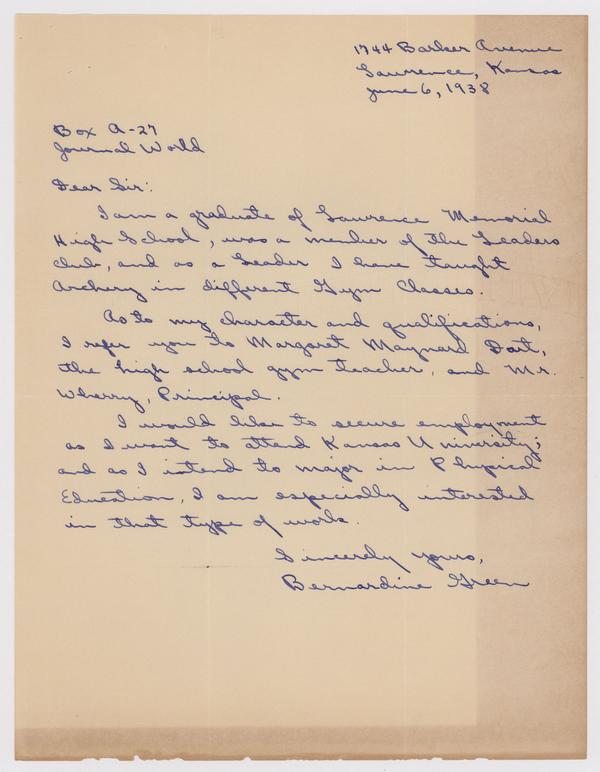 1744 Barker Avenue
Lawrence, Kansas
June 6, 1938
Box A-27
Journal World
Dear Sir:
I am a graduate of Lawrence Memorial
High School, was a member of the Leaders
club, and as a Leader I have taught
Archery in different Gym Classes.
As to my character and qualifications,
I refer you to Margaret Maynard Dart,
the high school gym teacher, and Mr.
Wherry, Principal.
I would like to secure employment
as I want to attend Kansas University;
and as I intend to major in Physical
Education, I am especially interested
in that type of work.
Sincerely yours,
Bernardine Green